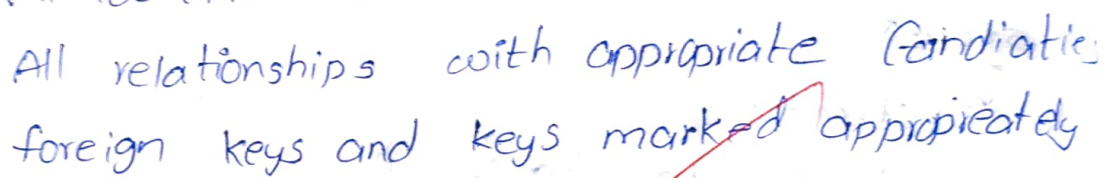 All relationships with appropriate Candiatie
foreign keys and keys marked appropieately